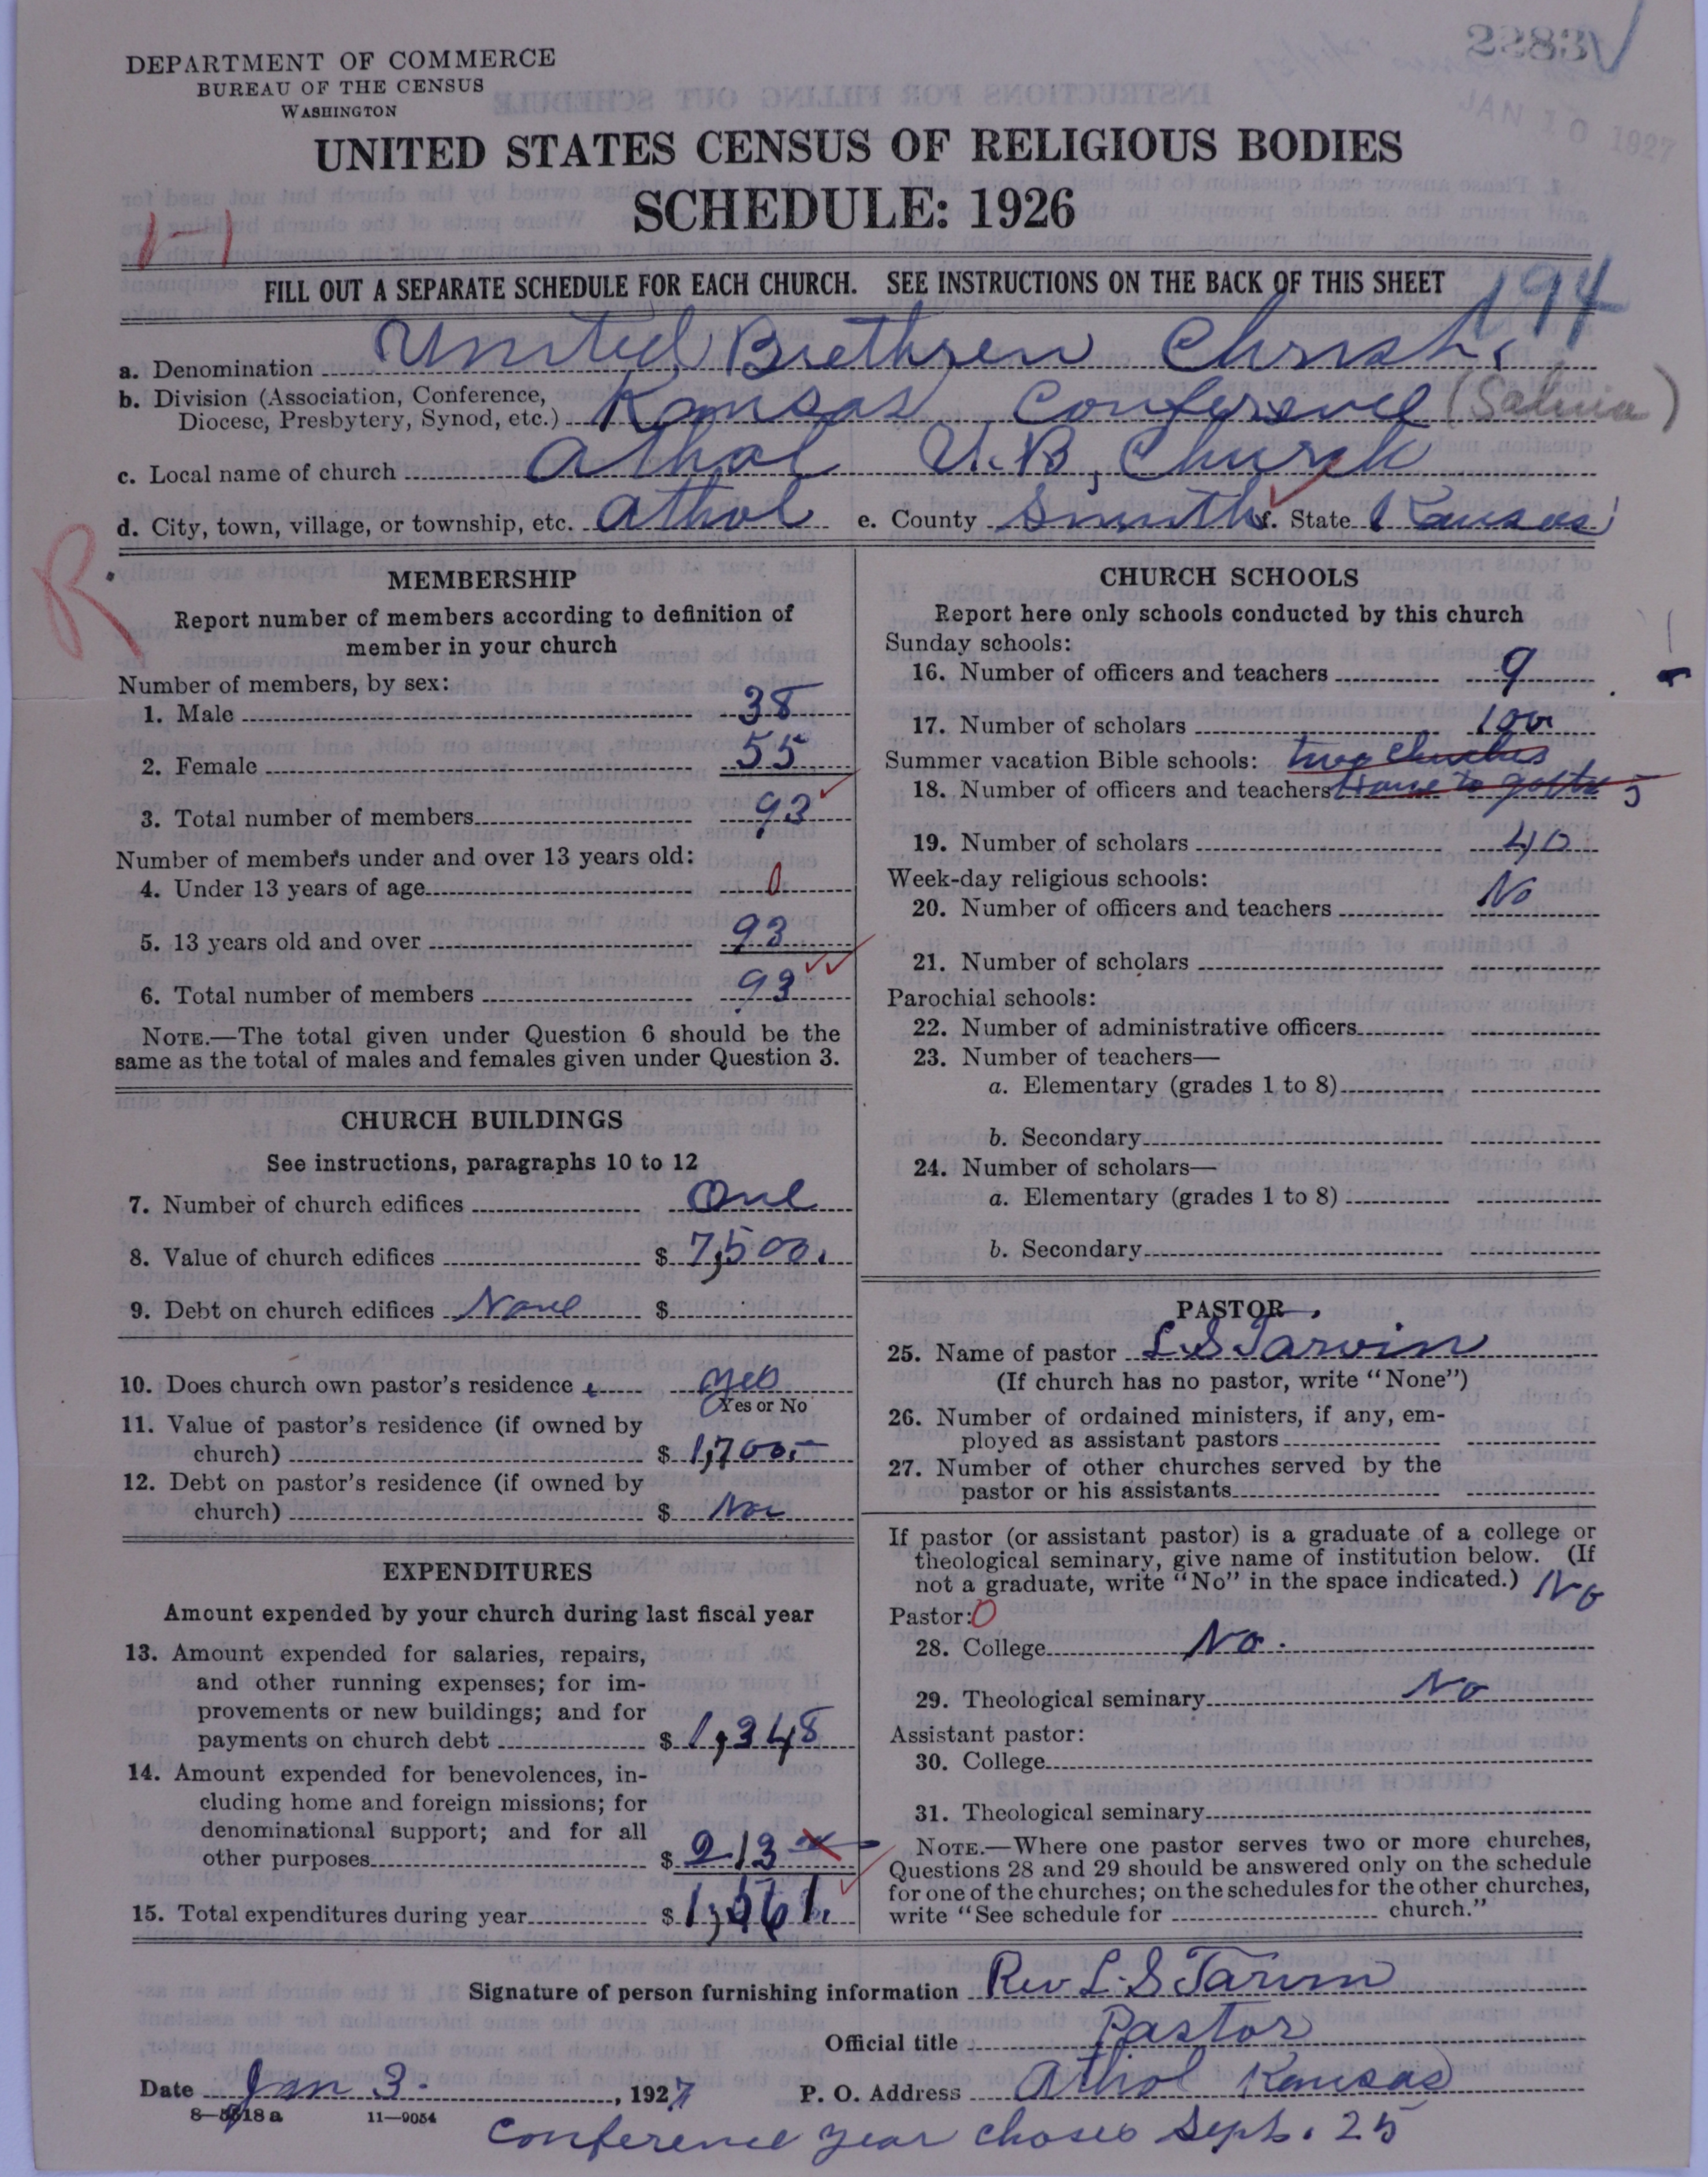 22831
JAN 10 1927
DEPARTMENT OF COMMERCE
BUREAU OF THE CENSUS
WASHINGTON
UNITED STATES CENSUS OF RELIGIOUS BODIES
SCHEDULE: 1926
1-1
FILL OUT A SEPARATE SCHEDULE FOR EACH CHURCH. SEE INSTRUCTIONS ON THE BACK OF THIS SHEET
194
a. Denomination United Brethren Christ
b. Division (Association, Conference,
Diocese, Presbytery, Synod, etc.) Kansas Conference (Salina)
c. Local name of church Athol U.B. Church
d. City, town, village, or township, etc. Athol e. County Smith f. State Kansas
R
MEMBERSHIP
Report number of members according to definition of
member in your church
Number of members, by sex:
1. Male 38
2. Female 55
3. Total number of members 93
Number of members under and over 13 years old:
4. Under 13 years of age 0
5. 13 years old and over 93
6. Total number of members 93
NOTE.—The total given under Question 6 should be the
same as the total of males and females given under Question 3.
CHURCH BUILDINGS
See instructions, paragraphs 10 to 12
7. Number of church edifices One
8. Value of church edifices $ 7,500.
9. Debt on church edifices None $
10. Does church own pastor's residence yes
Yes or No
11. Value of pastor's residence (if owned by
church) $ 1,700.—
12. Debt on pastor's residence (if owned by
church) $ No
EXPENDITURES
Amount expended by your church during last fiscal year
13. Amount expended for salaries, repairs,
and other running expenses; for im-
provements or new buildings; and for
payments on church debt $ 1,348
14. Amount expended for benevolences, in-
cluding home and foreign missions; for
denominational support; and for all
other purposes $ 213
15. Total expenditures during year $ 1,561.
CHURCH SCHOOLS
Report here only schools conducted by this church
Sunday schools:
16. Number of officers and teachers 9
17. Number of scholars 100
Summer vacation Bible schools: two churches
18. Number of officers and teachers 5
19. Number of scholars 40
Week-day religious schools:
20. Number of officers and teachers No
21. Number of scholars
Parochial schools:
22. Number of administrative officers
23. Number of teachers—
a. Elementary (grades 1 to 8)
b. Secondary
24. Number of scholars—
a. Elementary (grades 1 to 8)
b. Secondary
PASTOR
25. Name of pastor L.S Tarvin
(If church has no pastor, write "None")
26. Number of ordained ministers, if any, em-
ployed as assistant pastors
27. Number of other churches served by the
pastor or his assistants
If pastor (or assistant pastor) is a graduate of a college or
theological seminary, give name of institution below. (If
not a graduate, write "No" in the space indicated.) No
Pastor: 0
28. College No.
29. Theological seminary No
Assistant pastor:
30. College
31. Theological seminary
NOTE.—Where one pastor serves two or more churches,
Questions 28 and 29 should be answered only on the schedule
for one of the churches; on the schedules for the other churches,
write "See schedule for church."
Signature of person furnishing information Rev L.S Tarvin
Official title Pastor
Date Jan 3. , 1927 P. O. Address Athol Kansas
8—5518 a 11—9054
Conference year choses Sept. 25